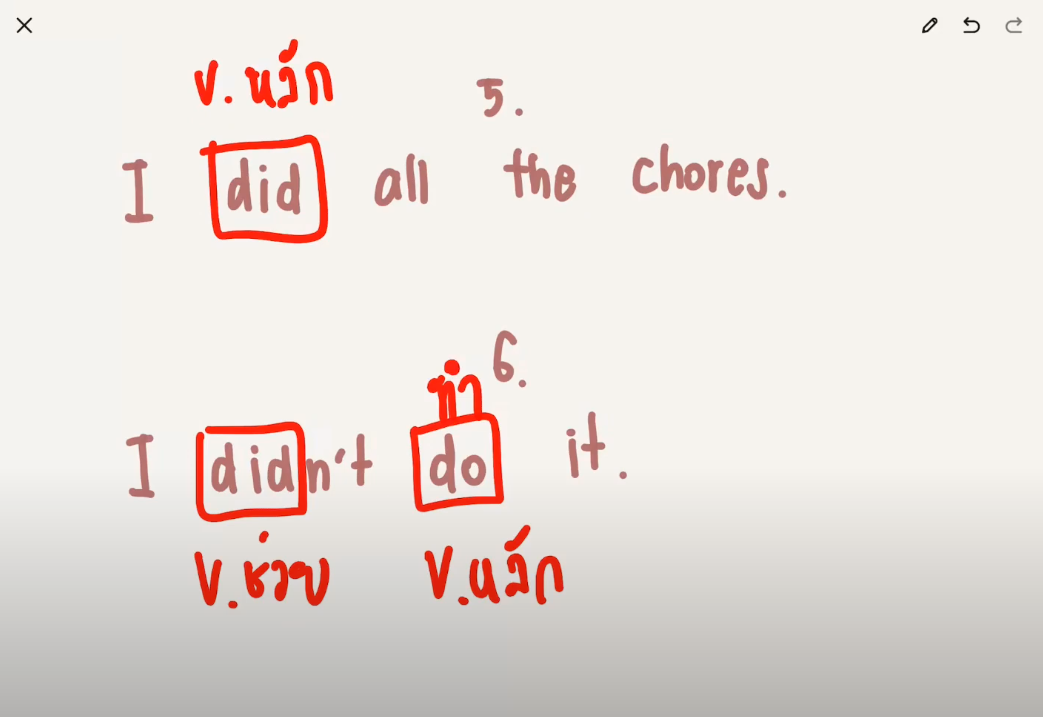 v.หลัก
5.
I did all the chores.
6.
ทำ
I didn't do it.
v.ช่วย v.หลัก